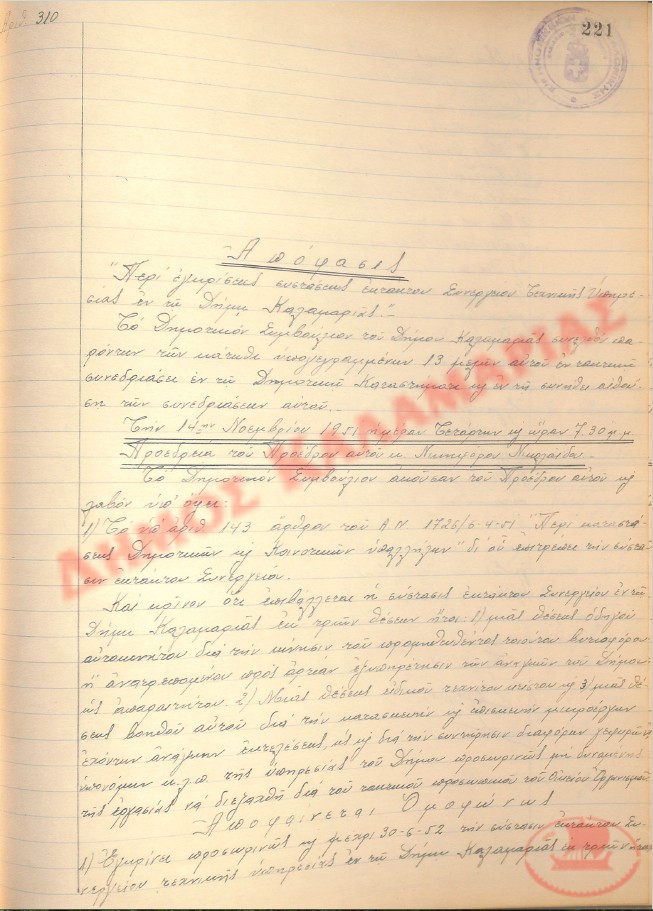 310
221
Ἀπόφασις
"Περί ἐγκρίσεως συστάσεως ἐκτάκτου Συνεργείου Τεχνικῆς Ὑπηρε-
σίας ἐν τῷ Δήμῳ Καλαμαριᾶς."
Τό Δημοτικόν Συμβούλιον τοῦ Δήμου Καλαμαριᾶς συνελθόν πα-
ρόντων τῶν κάτωθι ὑπογεγραμμένων 13 μελῶν αὐτοῦ ἐν τακτικῇ
συνεδριάσει ἐν τῷ Δημοτικῷ Καταστήματι κ ἐν τῇ συνήθει αἰθού-
σῃ τῶν συνεδριάσεων αὐτοῦ.
Τήν 14ην Νοεμβρίου 1951 ἡμέραν Τετάρτην κ ὥραν 7.30 μ.μ.
Προεδρείᾳ τοῦ Προέδρου αὐτοῦ κ. Νικηφόρου
Τό Δημοτικόν Συμβούλιον ἀκοῦσαν τοῦ Προέδρου αὐτοῦ κ
λαβόν ὑπ' ὄψει
1) Τό ὑπ' ἀριθ. 143 ἄρθρον τοῦ Α.Ν. 1726/6-4-51 "Περί καταστά-
σεως Δημοτικῶν κ Κοινοτικῶν ὑπαλλήλων" δι' οὗ ἐπιτρέπει τήν σύστα-
σιν ἐκτάκτου Συνεργείου.
Καί κρῖνον ὅτι ἐπιβάλλεται ἡ σύστασις ἐκτάκτου Συνεργείου ἐν τῷ
Δήμῳ Καλαμαριᾶς ἐκ τριῶν θέσεων ἤτοι: 1) μιᾶς θέσεως ὁδηγοῦ
αὐτοκινήτου διά τήν κίνησιν τοῦ προμηθευθέντος τοιούτου βυτιοφόρου
ἤ ἀνατρεπομένου πρός ἀρτίαν ἐξυπηρέτησιν τῶν ἀναγκῶν τοῦ Δήμου
ὡς ἀπαραιτήτου. 2) Μιᾶς θέσεως εἰδικοῦ τεχνίτου κτίστου κ 3) μιᾶς θέ-
σεως βοηθοῦ αὐτοῦ διά τήν κατασκευήν κ ἐπισκευήν μικροέργων
ἐχόντων ἀνάγκην ἐκτελέσεως, ὡς κ διά τήν συντήρησιν διαφόρων
ὑπονόμων κ.λ.π. τῆς ὑπηρεσίας τοῦ Δήμου προσωρινῶς μή δυναμένης
τῆς ἐργασίας νά διεξαχθῇ διά τοῦ τακτικοῦ προσωπικοῦ τοῦ Οἰκείου Ὀργανισμοῦ
Ἀποφαίνεται Ὁμοφώνως
1) Ἐγκρίνει προσωρινῶς κ μέχρι 30-6-52 τήν σύστασιν ἐκτάκτου Συ-
νεργείου τεχνικῆς ὑπηρεσίας ἐν τῷ Δήμῳ Καλαμαριᾶς ἐκ τριῶν
ΔΗΜΟΣ ΚΑΛΑΜΑΡΙΑΣ